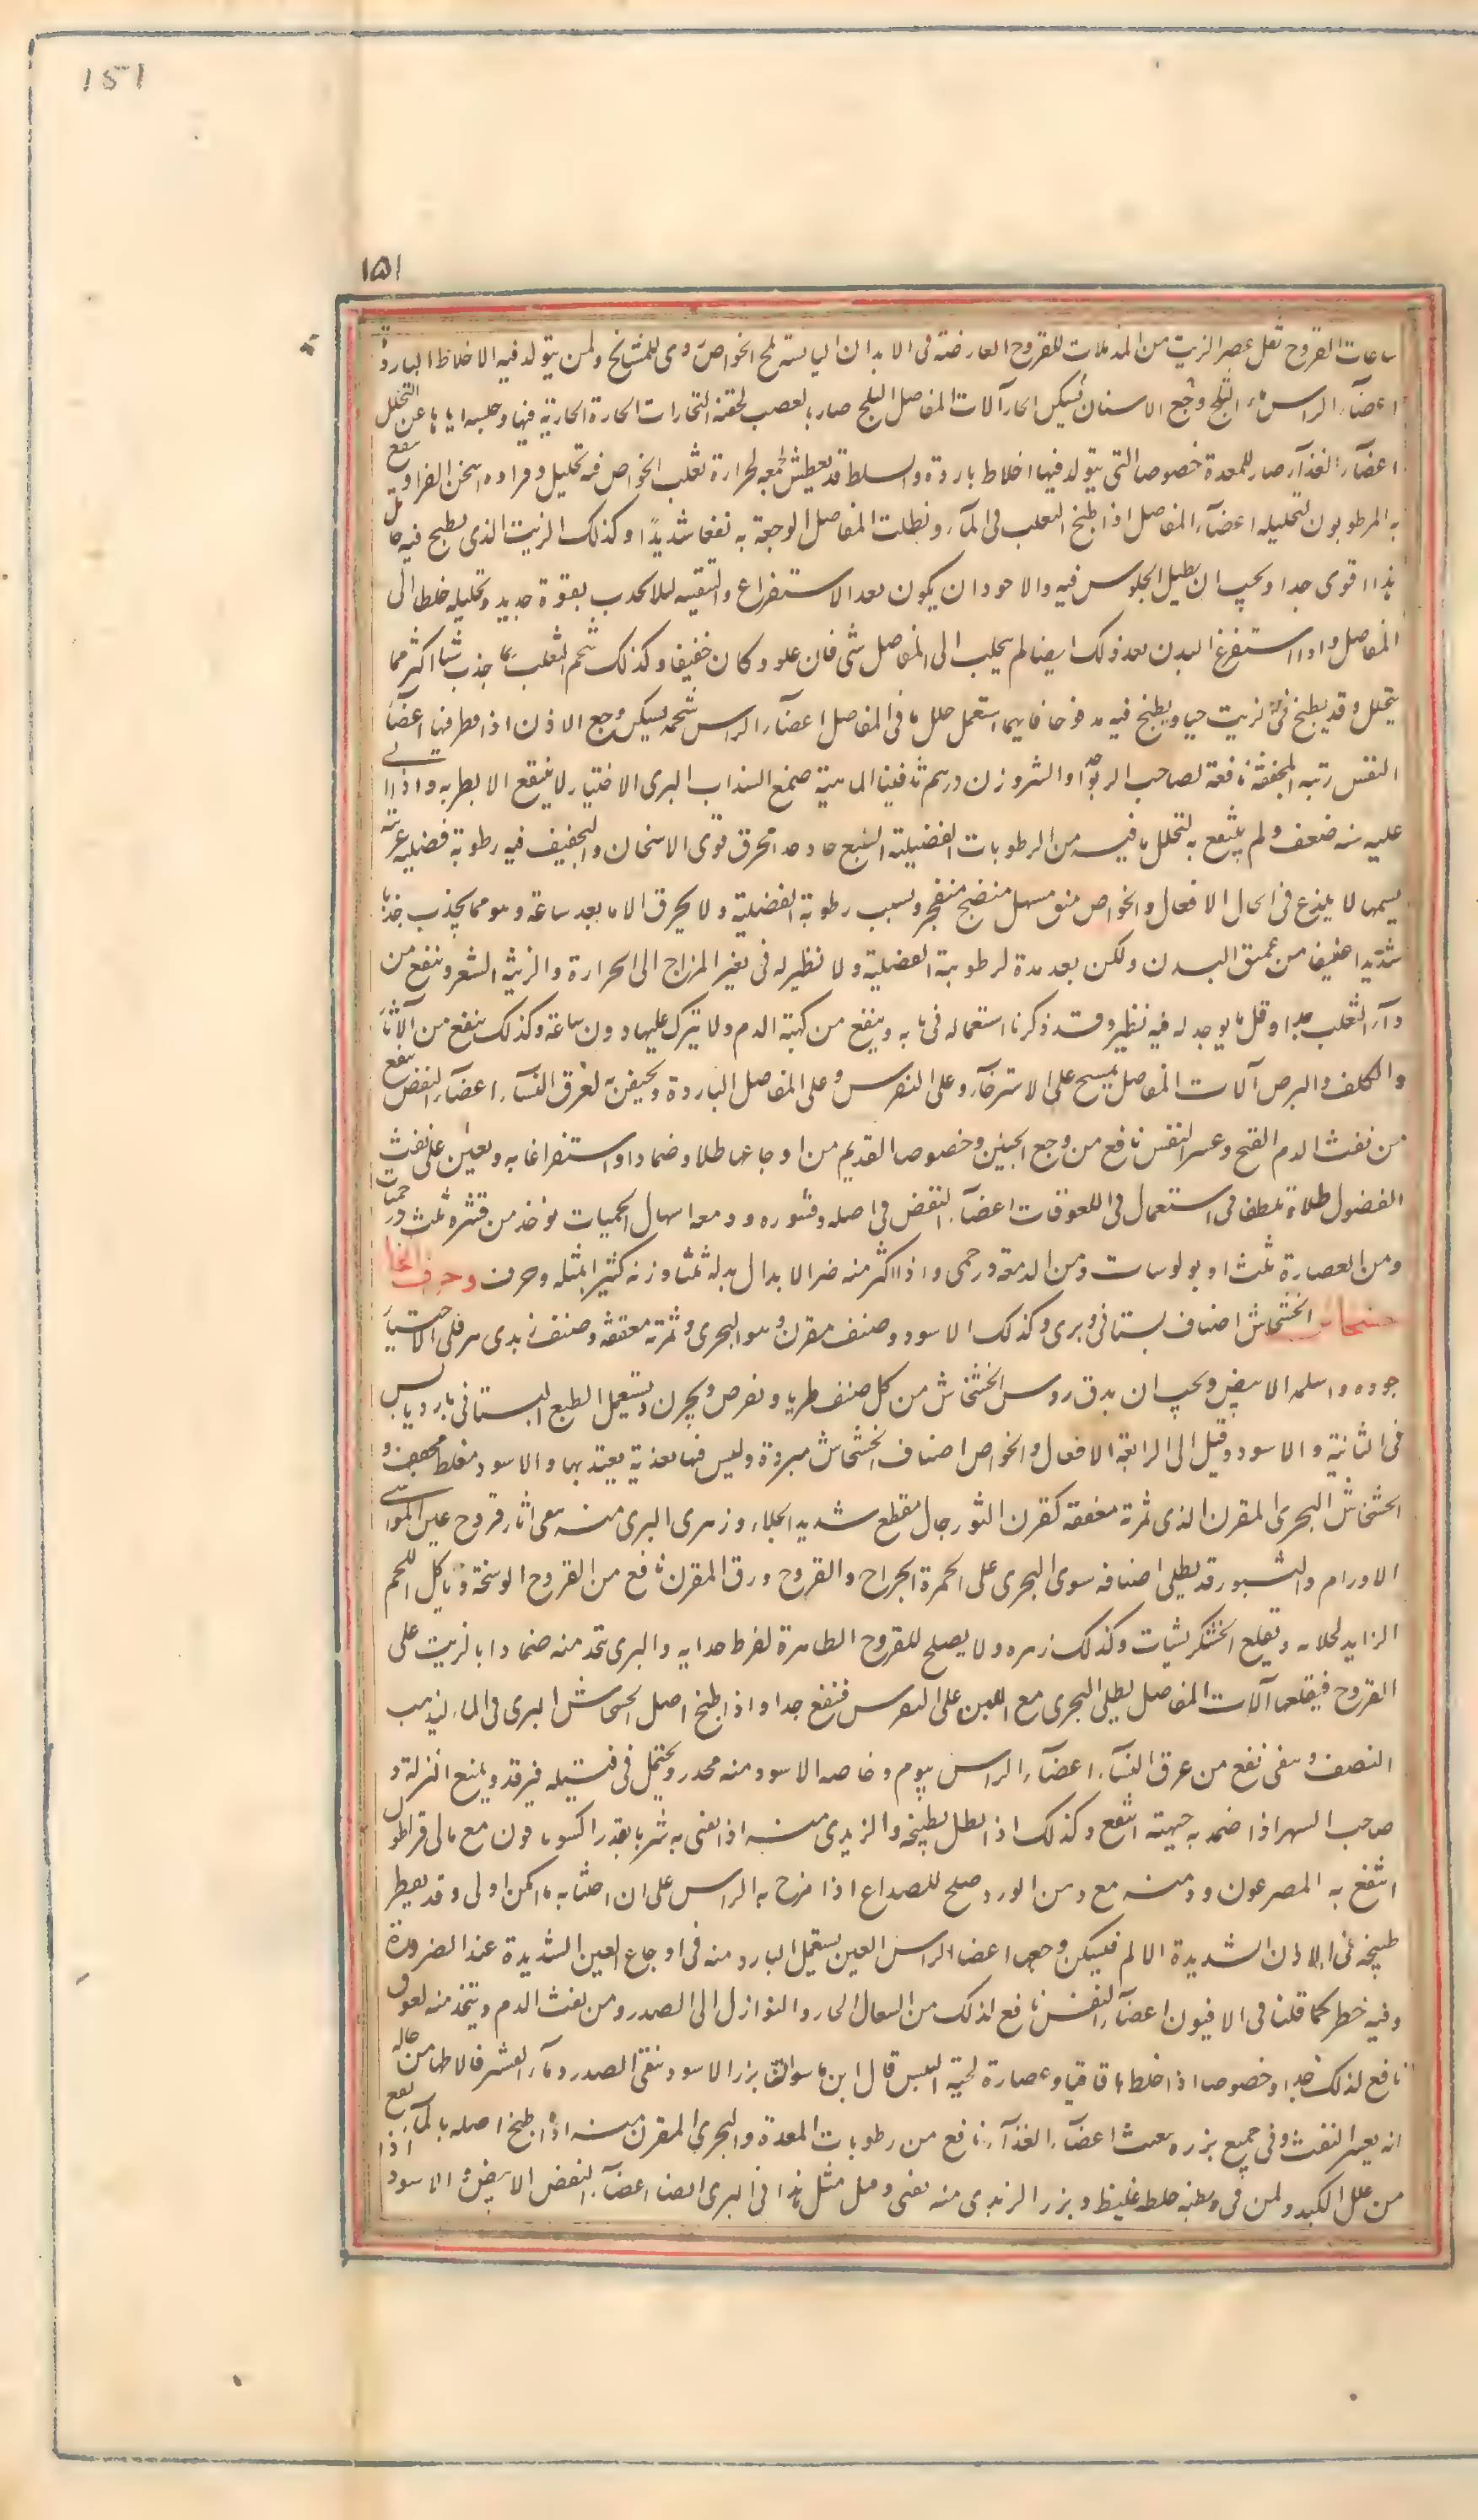 151
١۵١
ساعات القروح ثفل عصر الزيت من المدملات للقروح العارضة فى الابدان اليابسة لمح الخواص ردى للمشايخ ولمن يتولد فيه الاخلاط الباردة
اعضآء الراس ماء الثلج وجع الاسنان يسكن الحار آلات المفاصل الثلج صار بالعصب لحقنه البخارات الحارة الحارية فيها وحبسه اياها عن التحلل
اعضآء الغذآء صار للمعدة خصوصا التى يتولد فيها اخلاط باردة والسلط قد يعطش لجمعه لحرارة ثعلب الخواص فيه تحليل وفراوه اسخن الفراو ينتفع
به المرطوبون لتحليله اعضآء المفاصل اذا طبخ الثعلب فى المآء ونطلت المفاصل الوجعة به نفعا شديدًا وكذلك الزيت الذى يطبخ فيه
هذا اقوى جدا ويجب ان يطيل الجلوس فيه والاجود ان يكون بعد الاستفراغ والتنقية لئلا يجذب بقوة جديد وتحليله خلطا الى
المفاصل واذا استفرغ البدن بعد ذلك ايضا لم يجلب الى المفاصل شى فان علو وكان خفيفا وكذلك شحم الثعلب بما جذب شيئا اكثر مما
يتحلل وقد يطبخ فى الزيت حيا ويطبخ فيه مذبوحا فايهما استعمل حلل ما فى المفاصل اعضآء الراس شحمه يسكن وجع الاذن اذا قطر فيها اعضآء
النفس رئته المجففة نافعة لصاحب الربو جدا والشربة وزن درهم ثافسيا الماهية صمغ السذاب البرى الاختيار لا ينتفع الا بطريه واذا اتى
عليه سنه ضعف ولم ينتفع به لتحلل ما فيه من الرطوبات الفضيلة الطبع حار جدا محرق قوى الاسخان والتجفيف فيه رطوبة فضلية غريبة
بسببها لا يلذع فى الحال الافعال والخواص منق مسهل منضج منفجر وبسبب رطوبة الفضيلة ولا يحرق الا ما بعد ساعة وهو مما يجذب جذبا
شديدا عنيفا من عمق البدن ولكن بعد مدة لرطوبته الفضلية ولا نظير له فى تغير المزاج الى الحرارة والزينة الشعر وينفع من
دآء الثعلب جدا وقل ما يوجد له فيه نظير وقد ذكرنا استعماله فى بابه وينفع من كهبة الدم ولا تترك عليها دون ساعة وكذلك ينفع من الآثار
والكلف والبرص آلات المفاصل يمسح على الاسترخآء وعلى النقرس وعلى المفاصل الباردة ويحقن به لعرق النسآء اعضآء النفس ينفع
من نفث الدم القيح وعسر النفس نافع من وجع الجنبين وخصوصا القديم من اوجاعها طلاء وضمادا واستفراغا به ويعين على نفث
الفضول طلاء تلطفا فى استعمال فى اللعوقات اعضآء النفض فى اصله وقشوره ودمعه اسهال الحميات يوخذ من قشره ثلث درخميات
ومن العصارة ثلث اوبولوسات ومن الدمعة درخمى واذا اكثر منه ضر الابدال بدله ثلثا وزنه كثيرا بمثله وحرف وحرف الخا
خشخاش الخشخاش اصناف بستانى وبرى وكذلك الاسود وصنف مقرن وهو البحرى وثمرته معقفة وصنف زبدى هرقلى الاختيار
جوده واسلمه الابيض ويجب ان يدق روس الخشخاش من كل صنف طريا ويقرص ويخزن ويستعمل الطبع البستانى بارد يابس
فى الثانية والاسود وقيل الى الرابعة الافعال والخواص اصناف الخشخاش مبردة وليس فيها تغذية يعتد بها والاسود مغلظ مجفف و
الخشخاش البحرى المقرن الذى ثمرته معقفة كقرن الثور جال مقطع شديد الجلاء وزهرى البرى منه ينقى اثار قروح عين المواشى
الاورام والبثور قد يطلى اصنافه سوى البحرى على الحمرة الجراح والقروح ورق المقرن نافع من القروح الوسخة وياكل اللحم
الزايد لجلائه ويقلع الخشكريشات وكذلك زهره ولا يصلح للقروح الطاهرة لفرط جلايه والبرى يتخذ منه ضمادا بالزيت على
القروح فيقلعها آلات المفاصل يطلى البحرى مع اللبن على النقرس فينفع جدا واذا طبخ اصل الخشخاش البرى فى الماء ليذهب
النصف وسقى نفع من عرق النسآء اعضآء الراس ينوم وخاصه الاسود منه مخدر ويحتمل فى فتيله فيرقد ويمنع النزلة و
صاحب السهر اذا ضمد به جبهته انتفع وكذلك اذا نطل بطبيخه والزبدى منه اذا تقى به شربا بقدر اكسوثافون مع مالى قراطون
انتفع به المصرعون ودهنه مع دهن الورد صلح للصداع اذا مزج به الراس على ان اجتنابه ما امكن اولى وقد يقطر
طبيخه فى الاذن الشديدة الالم فيسكن وجعها اعضا الراس العين يستعمل البارد منه فى اوجاع العين الشديدة عند الضرورة
وفيه خطر كما قلنا فى الافيون اعضآء النفس نافع لذلك من السعال الحار والنوازل الى الصدر ومن نفث الدم ويتخذ منه لعوق
نافع لذلك جدا وخصوصا اذا خلط باقاقيا وعصارة لحية التيس قال ابن ماسويه ان بزر الاسود ينقى الصدر ومآء القشر فالاظهر من حاله
انه يعسر النفث وفى جميع بزره بعث اعضآء الغذآء نافع من رطوبات المعدة والبحرى المقرن منه اذا طبخ اصله بالمآء ينفع اذا
من علل الكبد ولمن فى بطنه خلط غليظ وبزر الزبدى منه يقى ومثل هذا فى البرى ايضا اعضآء النفض الابيض والاسود